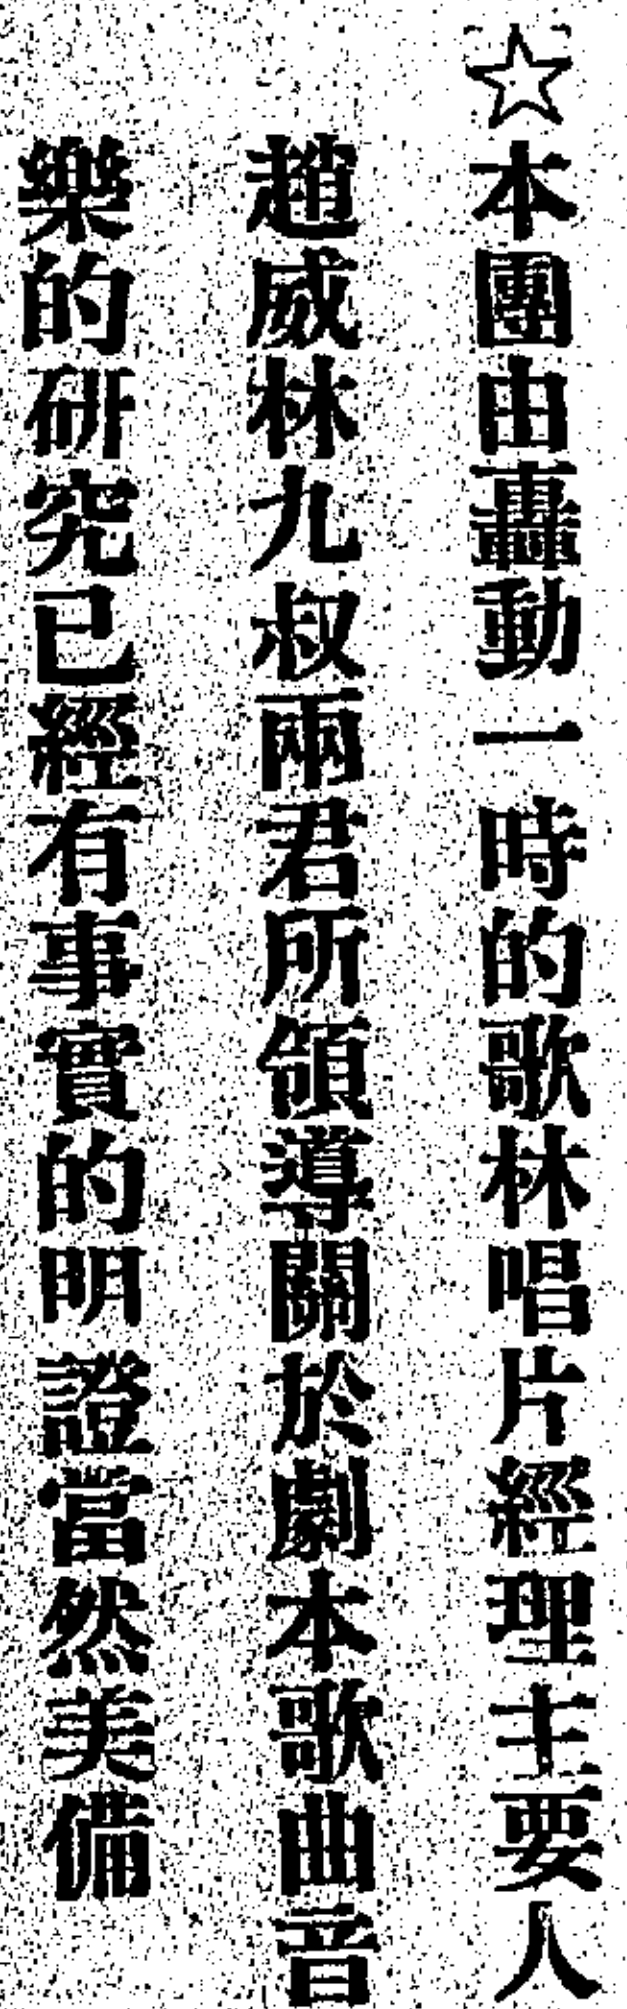 ☆本團由轟動一時的歌林唱片經理主要人
趙威林九叔兩君所領導關於劇本歌曲音
樂的研究已經有事實的明證當然美備